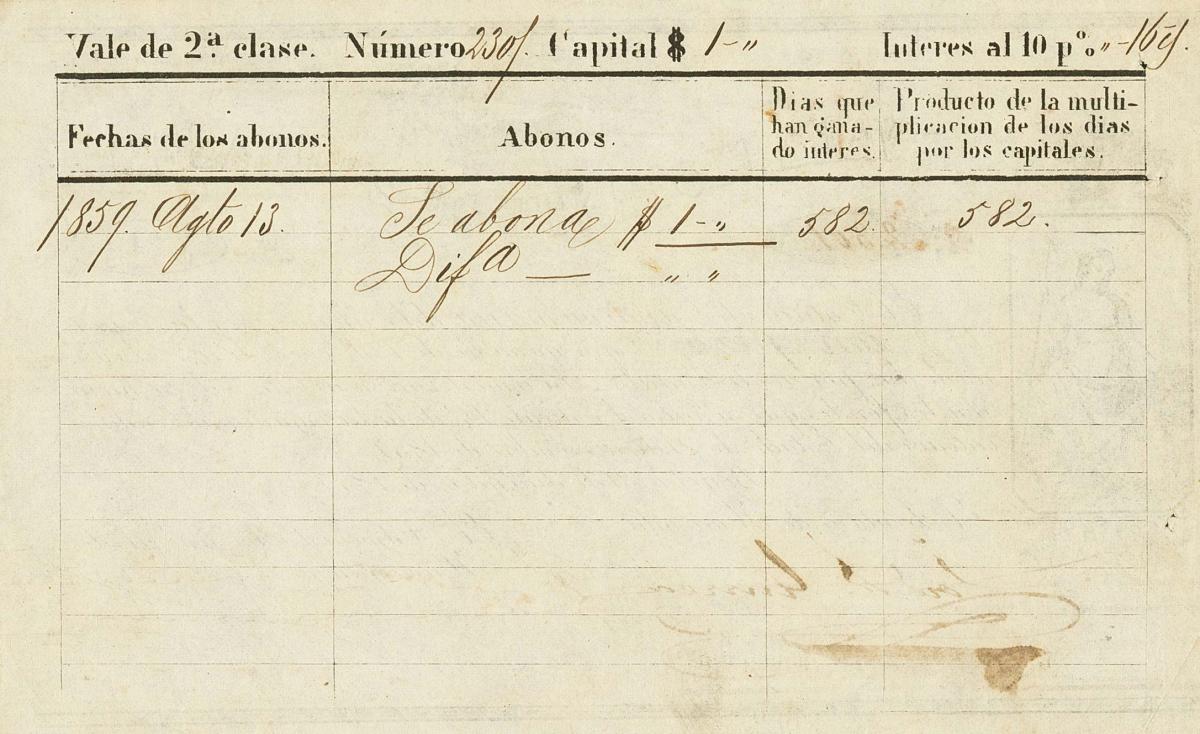 Vale de 2ª clase. Número 230 Capital $ 1-„ Interes al 10 pº% „-16
Fechas de los abonos. Abonos. Dias que han gana-do interes. Producto de la multi-plicacion de los dias por los capitales.
1859. Agto 13. Se abona $ 1-„ 582. 582.
Difª — „ „